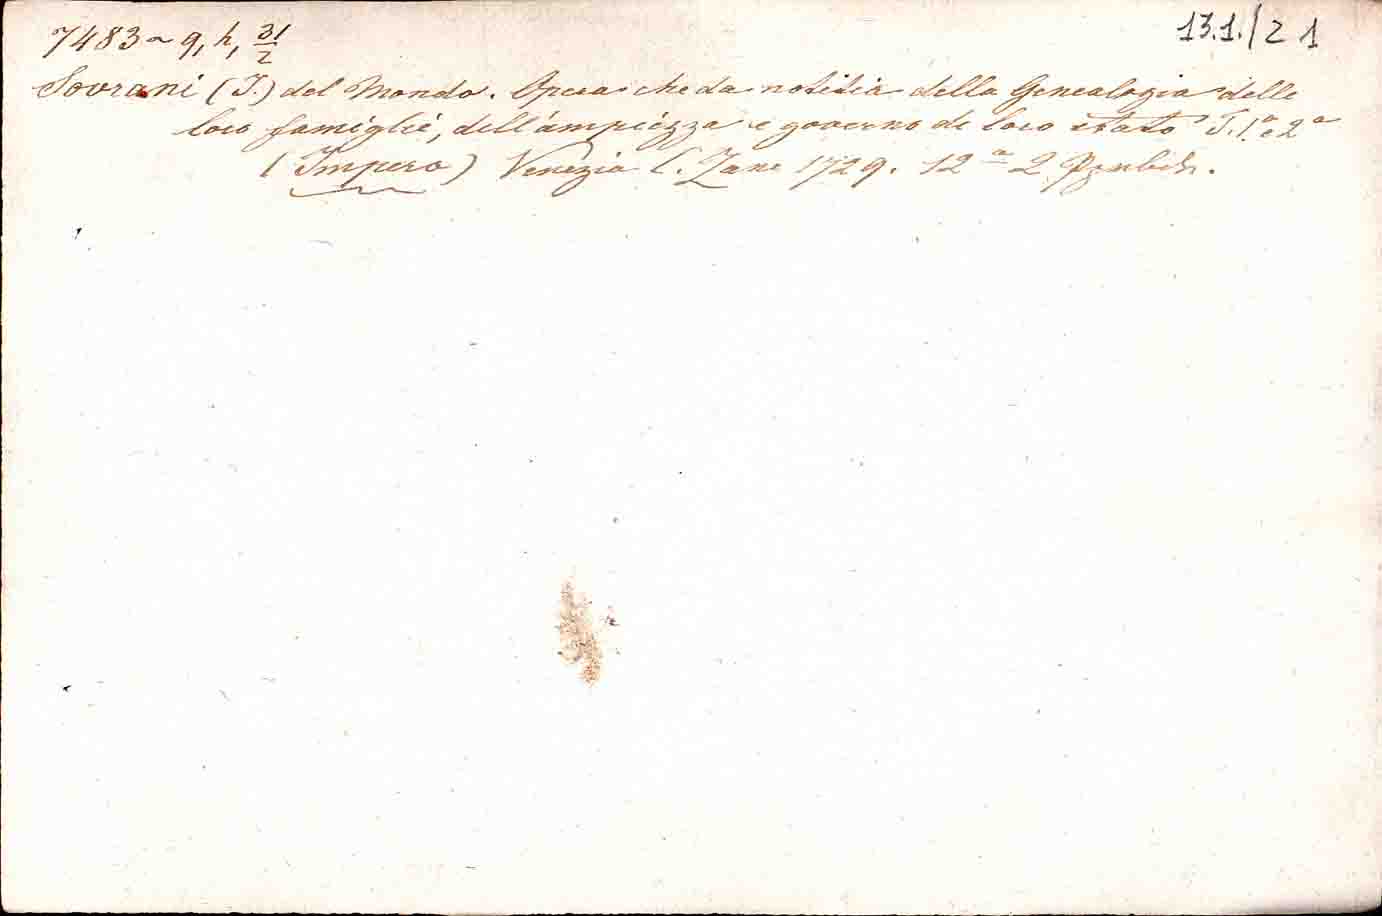 7483 ~ q, h, 31/2
13.1./21
Sovrani (I.) del Mondo. Opera che da notitia della Genealogia delle
loro famiglie, dell'ampiezza e governo de loro stato T. 1.a e 2a
(Impero) Venezia (. Zane 1729. 12a 2